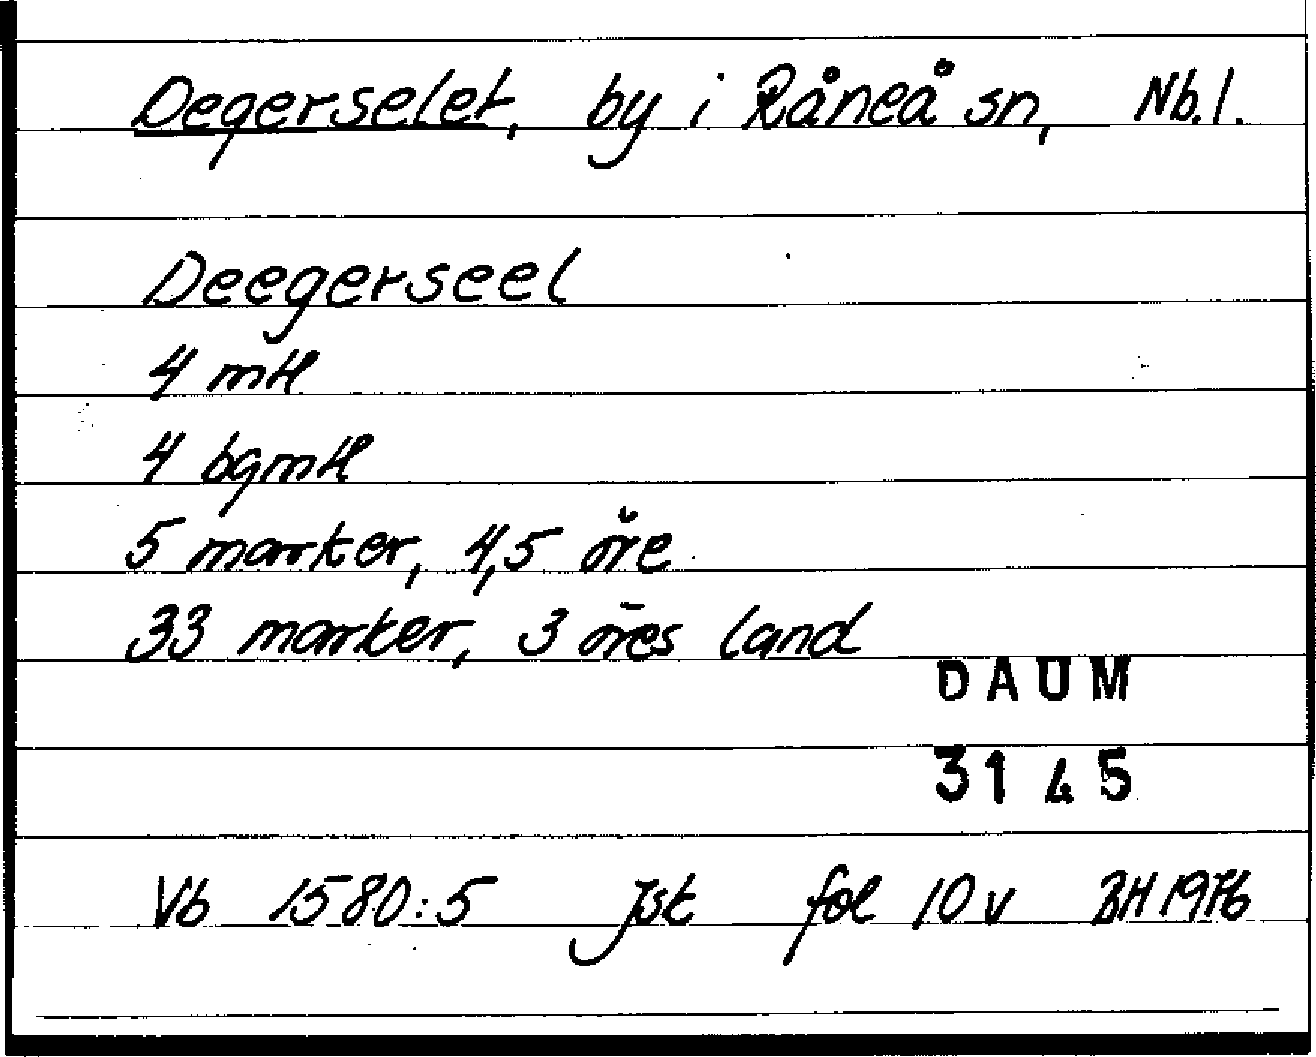 Degerselet, by i Råneå sn, Nb.l.
Deegerseel
4 mtl
4 bgmtl
5 marker, 4,5 öre
33 marker, 3 öres land
DAUM
3145
Vb 1580:5 jst fol 10 v BH 1976